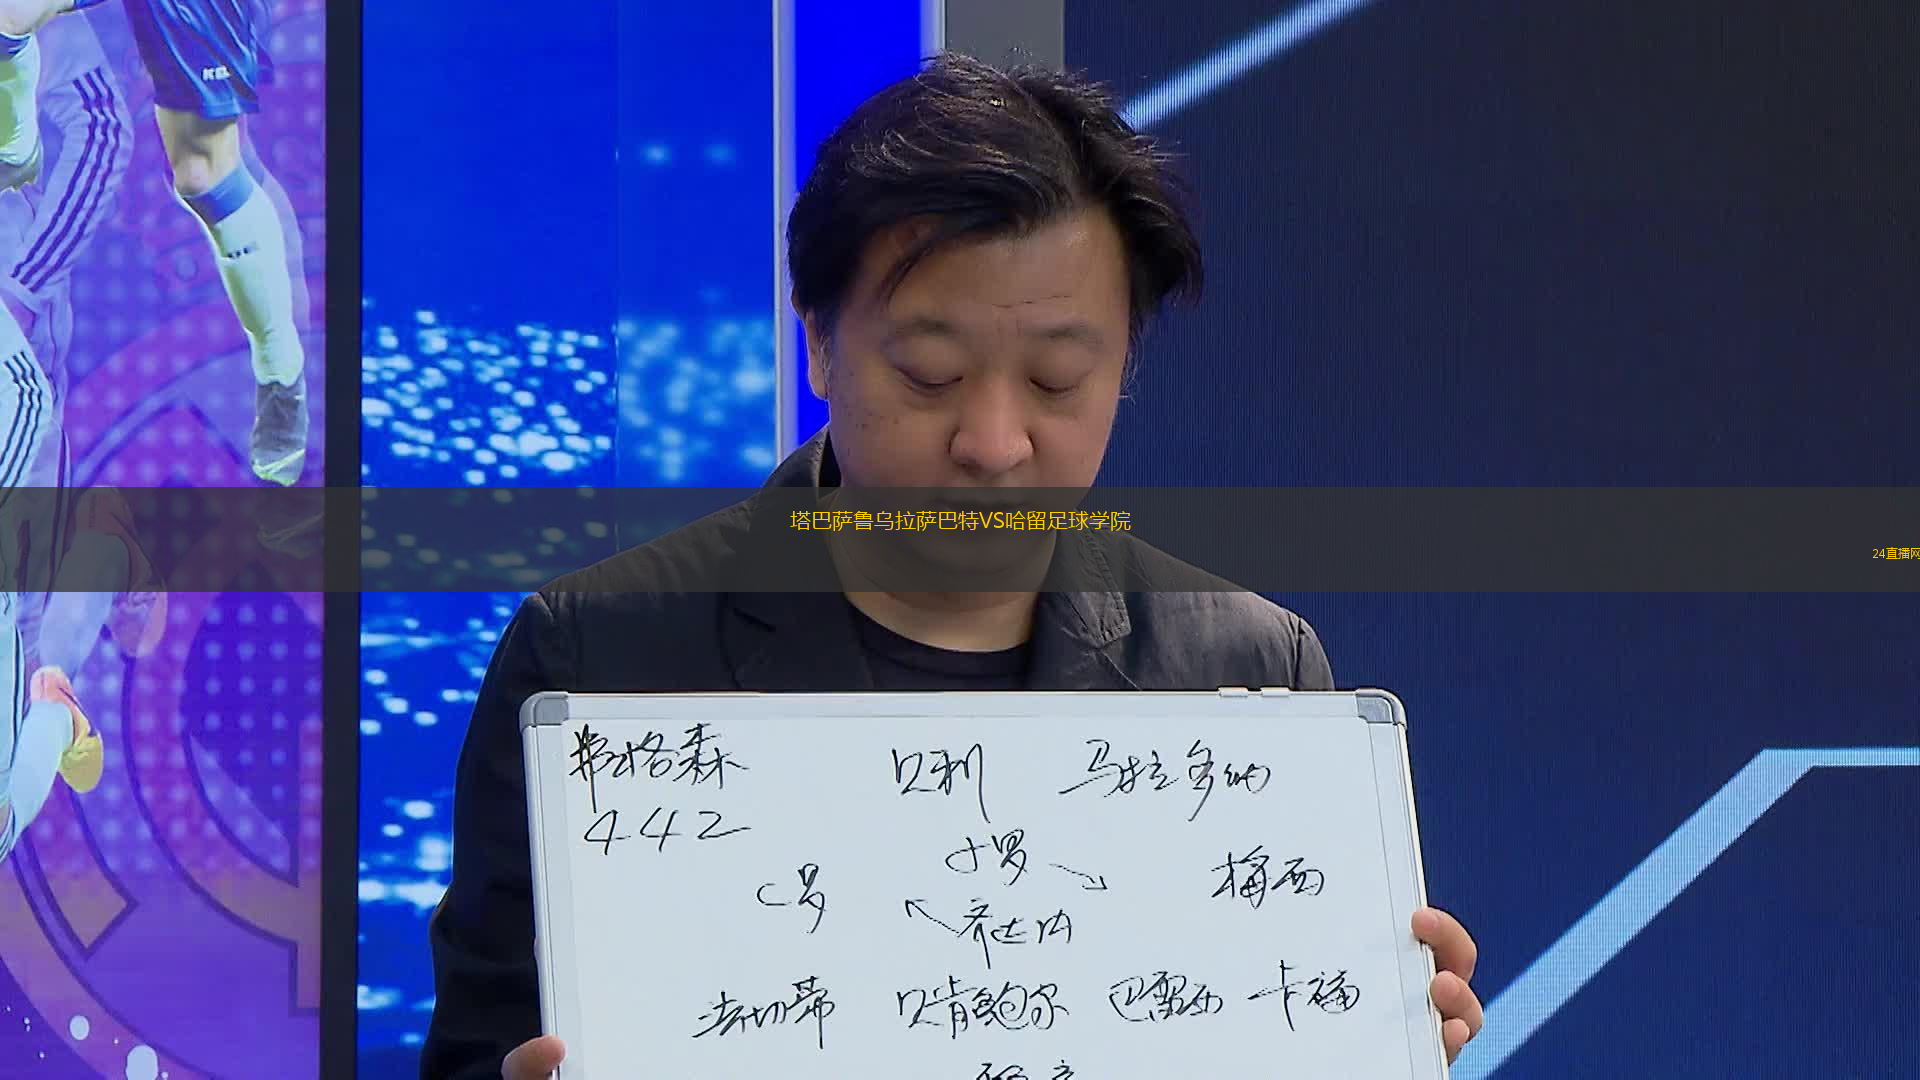 KEL
塔巴萨鲁乌拉萨巴特VS哈留足球学院
24直播网
弗格森 贝利 马拉多纳
442
小罗
C罗 梅西
齐达内
法切蒂 贝肯鲍尔 巴雷西 卡福